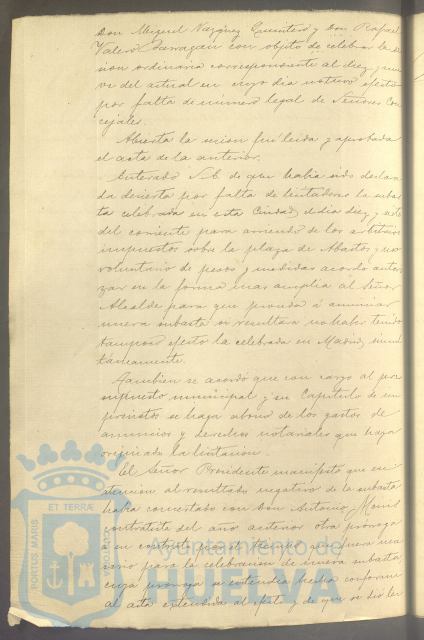 Don Miguel Vazquez Quintero y Don Rafael
Valero Barragan con objeto de celebrar la se
sion ordinaria correspondiente al diez y nue
ve del actual en cuyo dia no tuvo efecto
por falta de número legal de Señores Con
cejales.
Abierta la sesion fué leida y aprobada
el acta de la anterior.
Enterado S.E. de que habia sido declara
da desierta por falta de licitadores la subas
ta celebrada en esta Ciudad el dia diez y siete
del corriente para arriendo de los arbitrios
impuestos sobre la plaza de Abastos y uso
voluntario de pesas y medidas acordó autori
zar en la forma mas amplia al Señor
Alcalde para que proceda á anunciar
nueva subasta si resultara no haber tenido
tampoco efecto la celebrada en Madrid simul
táneamente.
Tambien se acordó que con cargo al pre
supuesto municipal y su Capitulo de im
previstos se haga abono de los gastos de
anuncios y derechos notariales que haya
originado la licitacion.
El Señor Presidente manifestó que en
atencion al resultado negativo de la subasta
habia concertado con Don Antonio
contratista del año anterior otra próroga
de su contrato por el tiempo que fuera nece
sario para la celebracion de nueva subasta
cuya próroga se entendia hecha conforme
al acta extendida al efecto y de que se dió lec
ET TERRÆ
PORTUS MARIS
CUSTODIA
Ayuntamiento de
HUELVA